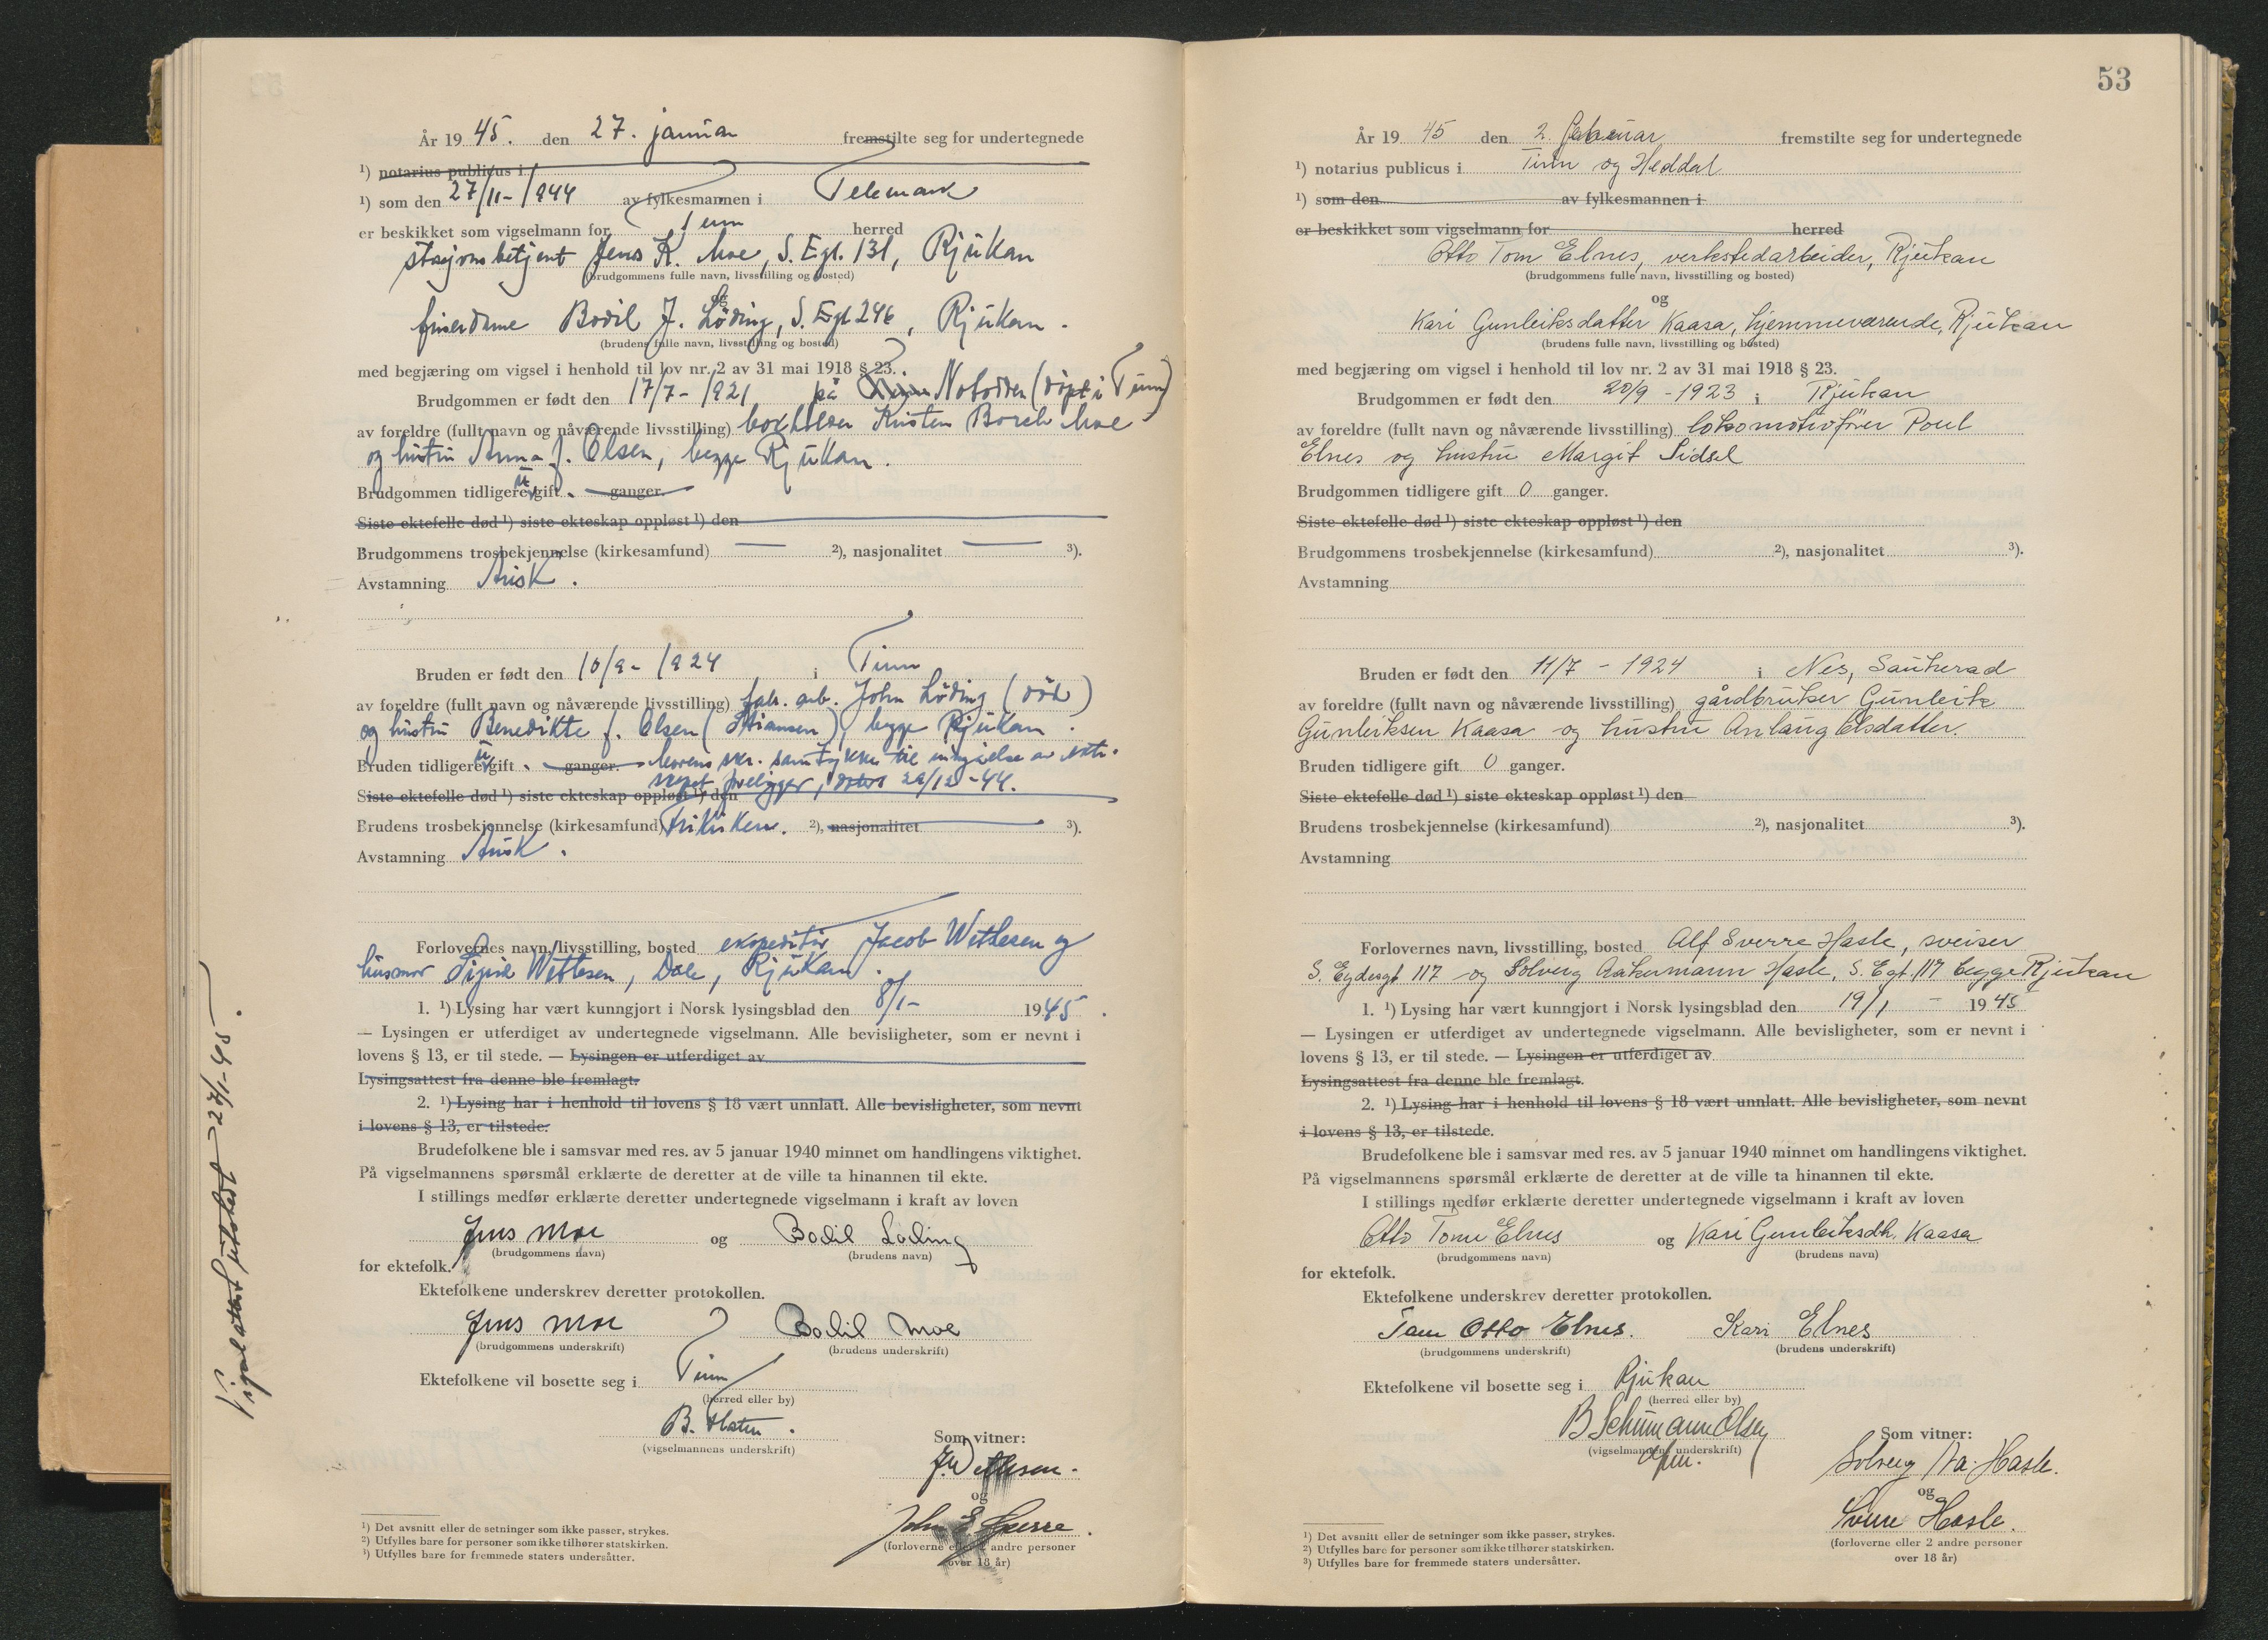 År 19 45. den 27. januar fremstilte seg for undertegnede
¹) notarius publicus i
¹) som den 27/11-1944 av fylkesmannen i Telemark
er beskikket som vigselmann for Tinn herred
stasjonsbetjent Jens K. Moe, S. Egt. 131, Rjukan
(brudgommens fulle navn, livsstilling og bosted)
og
Bodil J. Löding, S. Egt 246, Rjukan.
(brudens fulle navn, livsstilling og bosted)
med begjæring om vigsel i henhold til lov nr. 2 av 31 mai 1918 § 23.
Brudgommen er født den 17/7-1921 på Notodden (döpt i Tinn)
av foreldre (fullt navn og nåværende livsstilling) bokholder Kristen Borch Moe
og hustru Anna f. Olsen, begge Rjukan.
Brudgommen tidligere u gift. ganger.
Siste ektefelle død ¹) siste ekteskap oppløst ¹) den
Brudgommens trosbekjennelse (kirkesamfund) — ²), nasjonalitet — ³).
Avstamning Arisk.
Bruden er født den 10/9-1924 i Tinn
av foreldre (fullt navn og nåværende livsstilling) fab. arb. John Löding (död)
og hustru Benedikte f. Olsen (Stiansen), begge Rjukan.
Bruden tidligere u gift. ganger. Morens skr. samtykke til inngåelse av ekte-
skapet foreligger, datert 29/12-44.
Siste ektefelle død ¹) siste ekteskap oppløst ¹) den
Brudens trosbekjennelse (kirkesamfund) Frikirken. ²), nasjonalitet ³).
Avstamning Arisk.
Forlovernes navn, livsstilling, bosted ekspeditör Jacob Wetlesen og
husmor Sigrid Wetlesen, Dale, Rjukan.
1. ¹) Lysing har vært kunngjort i Norsk lysingsblad den 8/1- 1945.
— Lysingen er utferdiget av undertegnede vigselmann. Alle bevisligheter, som er nevnt i
lovens § 13, er til stede. — Lysingen er utferdiget av
Lysingsattest fra denne ble fremlagt.
2. ¹) Lysing har i henhold til lovens § 18 vært unnlatt. Alle bevisligheter, som nevnt
i lovens § 13, er tilstede.
Brudefolkene ble i samsvar med res. av 5 januar 1940 minnet om handlingens viktighet.
På vigselmannens spørsmål erklærte de deretter at de ville ta hinannen til ekte.
I stillings medfør erklærte deretter undertegnede vigselmann i kraft av loven
Jens Moe og Bodil Löding
(brudgommens navn) (brudens navn)
for ektefolk.
Ektefolkene underskrev deretter protokollen.
Jens Moe Bodil Moe
(brudgommens underskrift) (brudens underskrift)
Ektefolkene vil bosette seg i Tinn
(herred eller by)
B.
(vigselmannens underskrift)
Som vitner:
J. Wetlesen.
og
John E
(forloverne eller 2 andre personer
over 18 år)
¹) Det avsnitt eller de setninger som ikke passer, strykes.
²) Utfylles bare for personer som ikke tilhører statskirken.
³) Utfylles bare for fremmede staters undersåtter.
Vigselattest utstedt 27/1-45.
53
År 19 45 den 2. februar fremstilte seg for undertegnede
¹) notarius publicus i Tinn og Heddal
¹) som den av fylkesmannen i
er beskikket som vigselmann for herred
Otto Tom Elnes, verkstedarbeider, Rjukan
(brudgommens fulle navn, livsstilling og bosted)
og
Kari Gunleiksdatter Kaasa, hjemmeværende, Rjukan
(brudens fulle navn, livsstilling og bosted)
med begjæring om vigsel i henhold til lov nr. 2 av 31 mai 1918 § 23.
Brudgommen er født den 20/9 - 1923 i Rjukan
av foreldre (fullt navn og nåværende livsstilling) lokomotivfører Poul
Elnes og hustru Margit Sidsel
Brudgommen tidligere gift 0 ganger.
Siste ektefelle død ¹) siste ekteskap oppløst ¹) den
Brudgommens trosbekjennelse (kirkesamfund) ²), nasjonalitet ³).
Avstamning
Bruden er født den 11/7 - 1924 i Nes, Sauherad
av foreldre (fullt navn og nåværende livsstilling) gårdbruker Gunleik
Gunleiksen Kaasa og hustru Anlaug Olsdatter.
Bruden tidligere gift 0 ganger.
Siste ektefelle død ¹) siste ekteskap oppløst ¹) den
Brudens trosbekjennelse (kirkesamfund) ²), nasjonalitet ³).
Avstamning
Forlovernes navn, livsstilling, bosted Alf Sverre Hasle, sveiser
S. Eydesgt 117 og Solveig Aakermann Hasle, S. Egt. 117 begge Rjukan
1. ¹) Lysing har vært kunngjort i Norsk lysingsblad den 19/1 - 1945
— Lysingen er utferdiget av undertegnede vigselmann. Alle bevisligheter, som er nevnt i
lovens § 13, er til stede. — Lysingen er utferdiget av
Lysingsattest fra denne ble fremlagt.
2. ¹) Lysing har i henhold til lovens § 18 vært unnlatt. Alle bevisligheter, som nevnt
i lovens § 13, er tilstede.
Brudefolkene ble i samsvar med res. av 5 januar 1940 minnet om handlingens viktighet.
På vigselmannens spørsmål erklærte de deretter at de ville ta hinannen til ekte.
I stillings medfør erklærte deretter undertegnede vigselmann i kraft av loven
Otto Tom Elnes og Kari Gunleiksdtr. Kaasa
(brudgommens navn) (brudens navn)
for ektefolk.
Ektefolkene underskrev deretter protokollen.
Tom Otto Elnes. Kari Elnes
(brudgommens underskrift) (brudens underskrift)
Ektefolkene vil bosette seg i Rjukan
(herred eller by)
B Schumann Olsen
(vigselmannens underskrift)
Som vitner:
Solveig Aa. Hasle.
og
Sverre Hasle.
(forloverne eller 2 andre personer
over 18 år)
¹) Det avsnitt eller de setninger som ikke passer, strykes.
²) Utfylles bare for personer som ikke tilhører statskirken.
³) Utfylles bare for fremmede staters undersåtter.